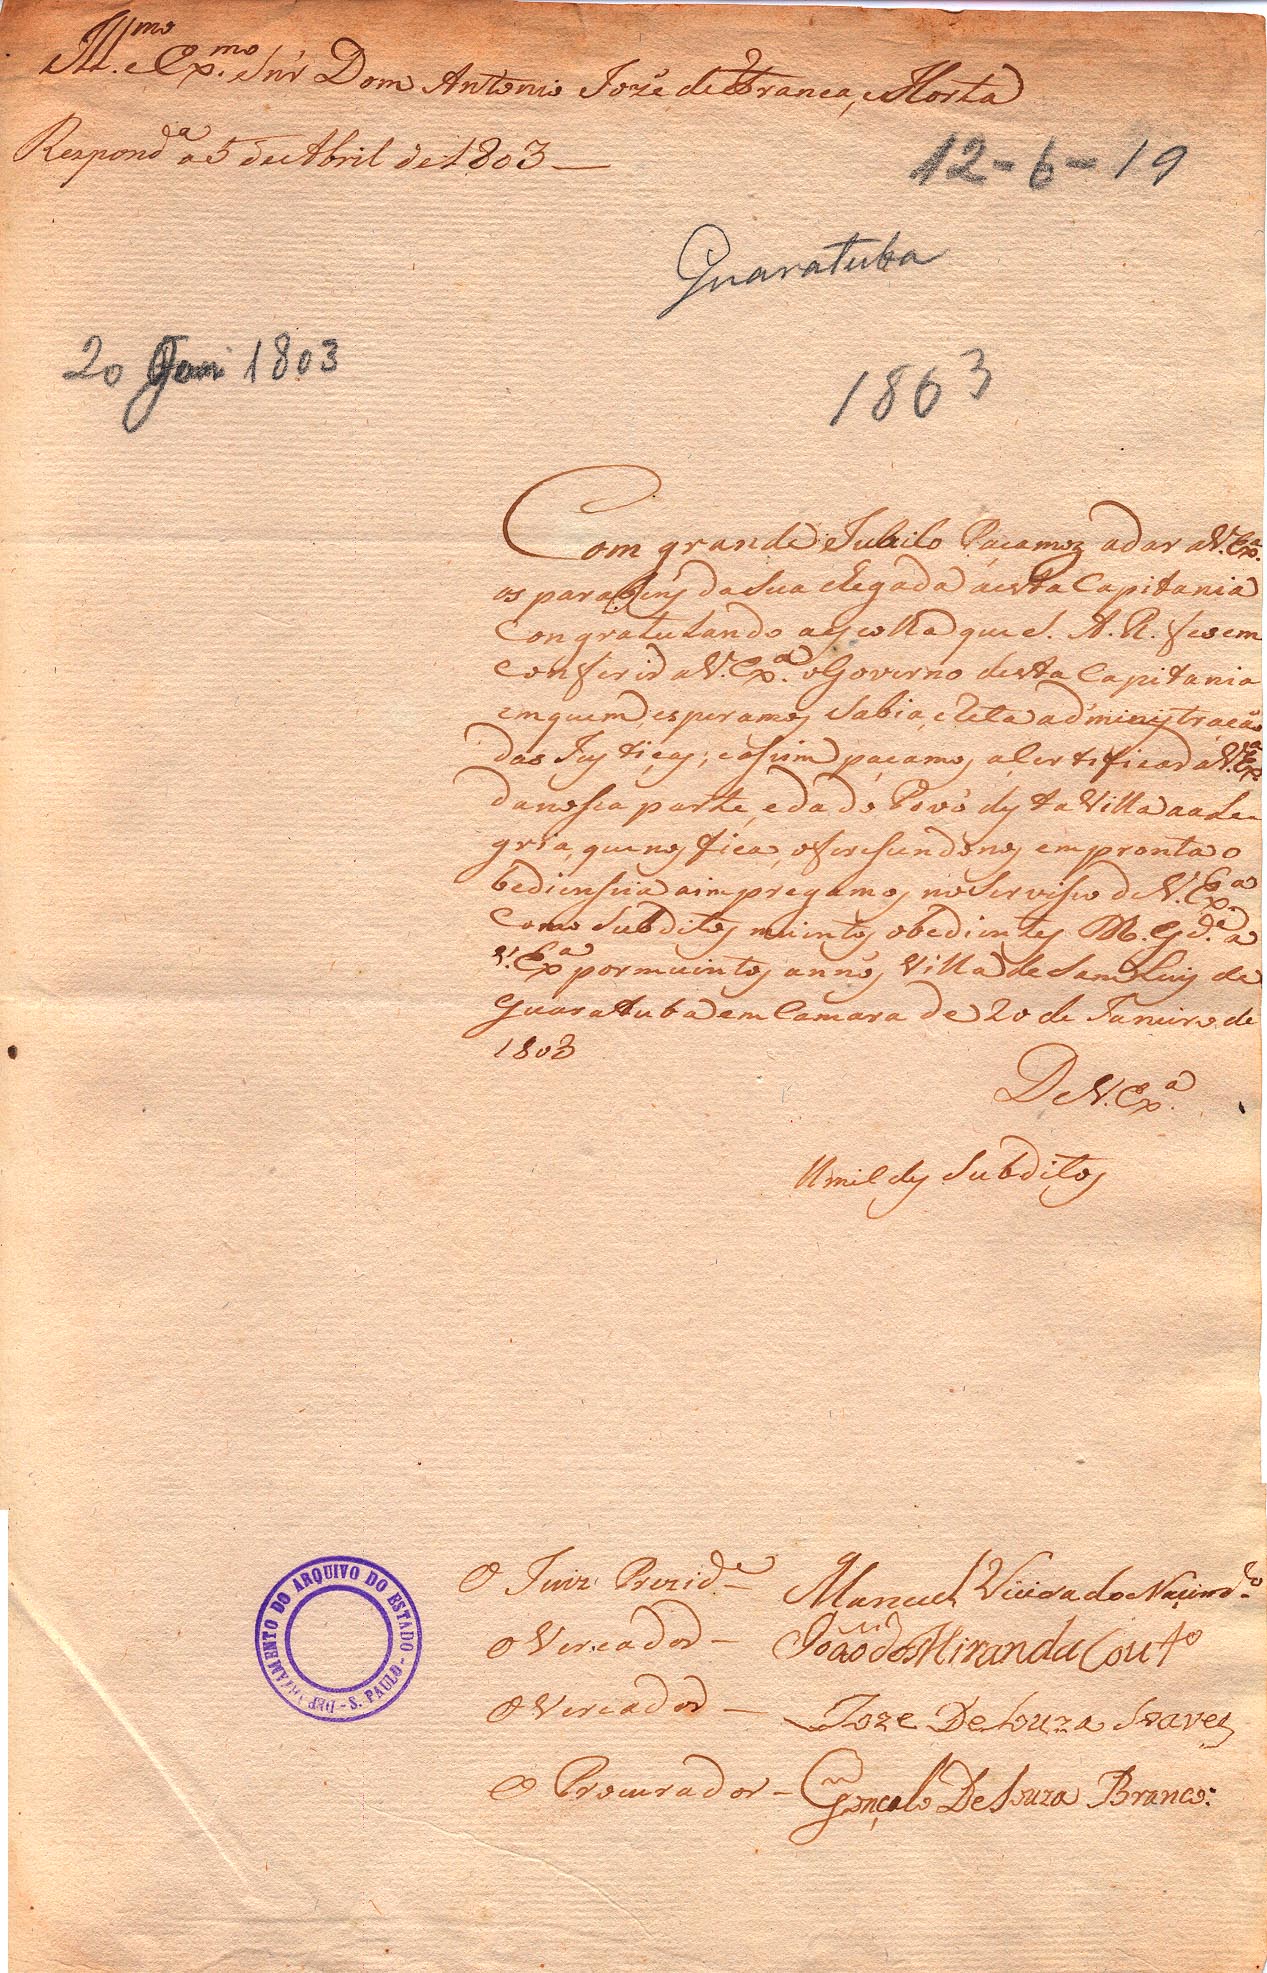 Ill.mo e Ex.mo Snr̃ Dom Antonio Joze de Franca, e Horta
Respond.a a 5 de Abril de 1803 —
12-6-19
Guaratuba
20 Jani 1803
1803
Com grande Jubilo Paçamoz adar aV. Ex.a
os parabens da Sua chegada áesta Capitania
Congratulando aescolha que S. A. R. fes em
Conferir a V. Ex.a o Governo desta Capitania
emquem esperamos Sabia, e Reta administração
das Justiças; easim paçamos açertificar a V. Ex.a
danosca parte, eda do Povo desta Villa aale
gria, quenos fica, oferesendonos empronta o
bediensiia aimpregamos noServiso de V. Ex.a
Como Subditos muintos obedientes D. Gd.e a
V. Ex.a pormuintos annos Villa de Sam Luis de
Guaratuba em Camara de 20 de Janeiro de
1803
De V. Ex.a
Umildes Subditos
O Juiz Prezid.e — Manuel Vieira do Nacimd.o
O Vereador — João de Miranda Cout.o
O Vereador — Joze De Souza Soares
O Procurador — Gonçalo De Souza Branco.
DEPARTAMENTO DO ARQUIVO DO ESTADO - S. PAULO -